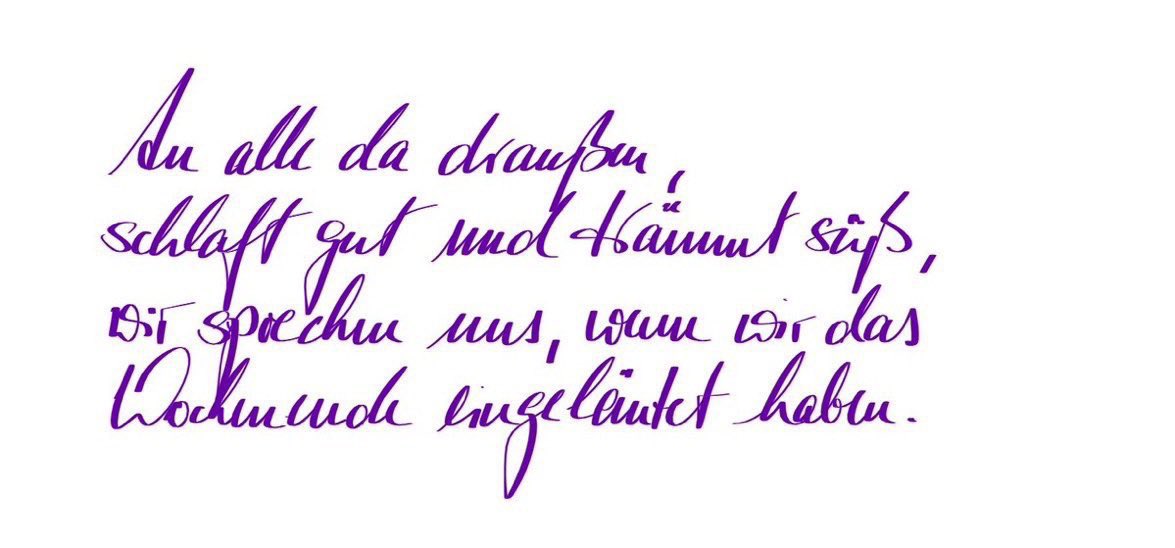 An alle da draußen,
schlaft gut und träumt süß,
wir sprechen uns, wenn wir das
Wochenende eingeläutet haben.